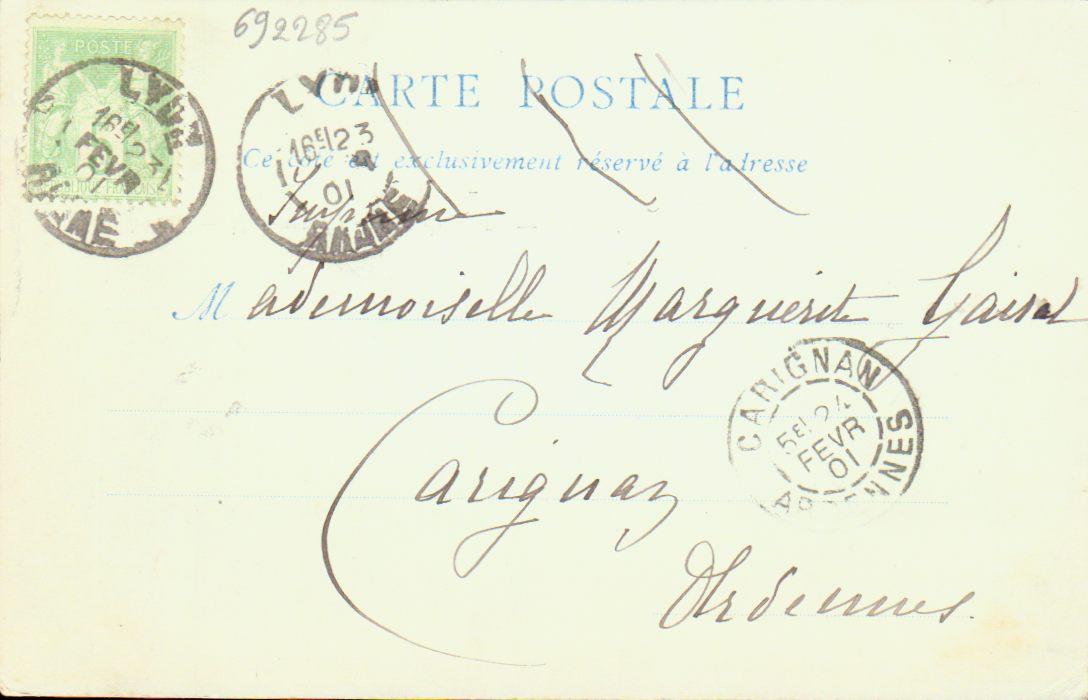 692285
POSTE
LYON
16E 23
FEVR
01
RHÔNE
LYON
16E 23
01
RHÔNE
CARTE POSTALE
Ce côté est exclusivement réservé à l'adresse
Imprimé
Mademoiselle Marguerite
CARIGNAN
5E 24
FEVR
01
ARDENNES
Carignan
Ardennes.